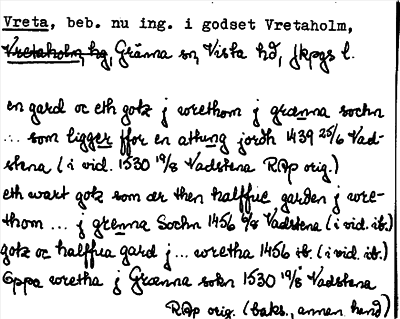 Vreta, beb. nu ing. i godset Vretaholm,
Vretaholm, hg, Gränna sn, Vista hd, Jkpgs l.
en gard oc eth gotz j wrethom j grænna sochn
... som ligger ffor en athung jordh 1439 25/6 Vad-
stena (i vid. 1530 19/8 Vadstena RAp orig.)
eth wart gotz som ær then halffue garden j wre-
thom ... j grenna Sochn 1456 6/8 Vadstena (i vid. ib.)
gotz oc halffua gard j ... wretha 1456 ib. (i vid. ib.)
Oppa wretha j Grænna sokn 1530 19/8 Vadstena
RAp orig. (baks., annen hand)